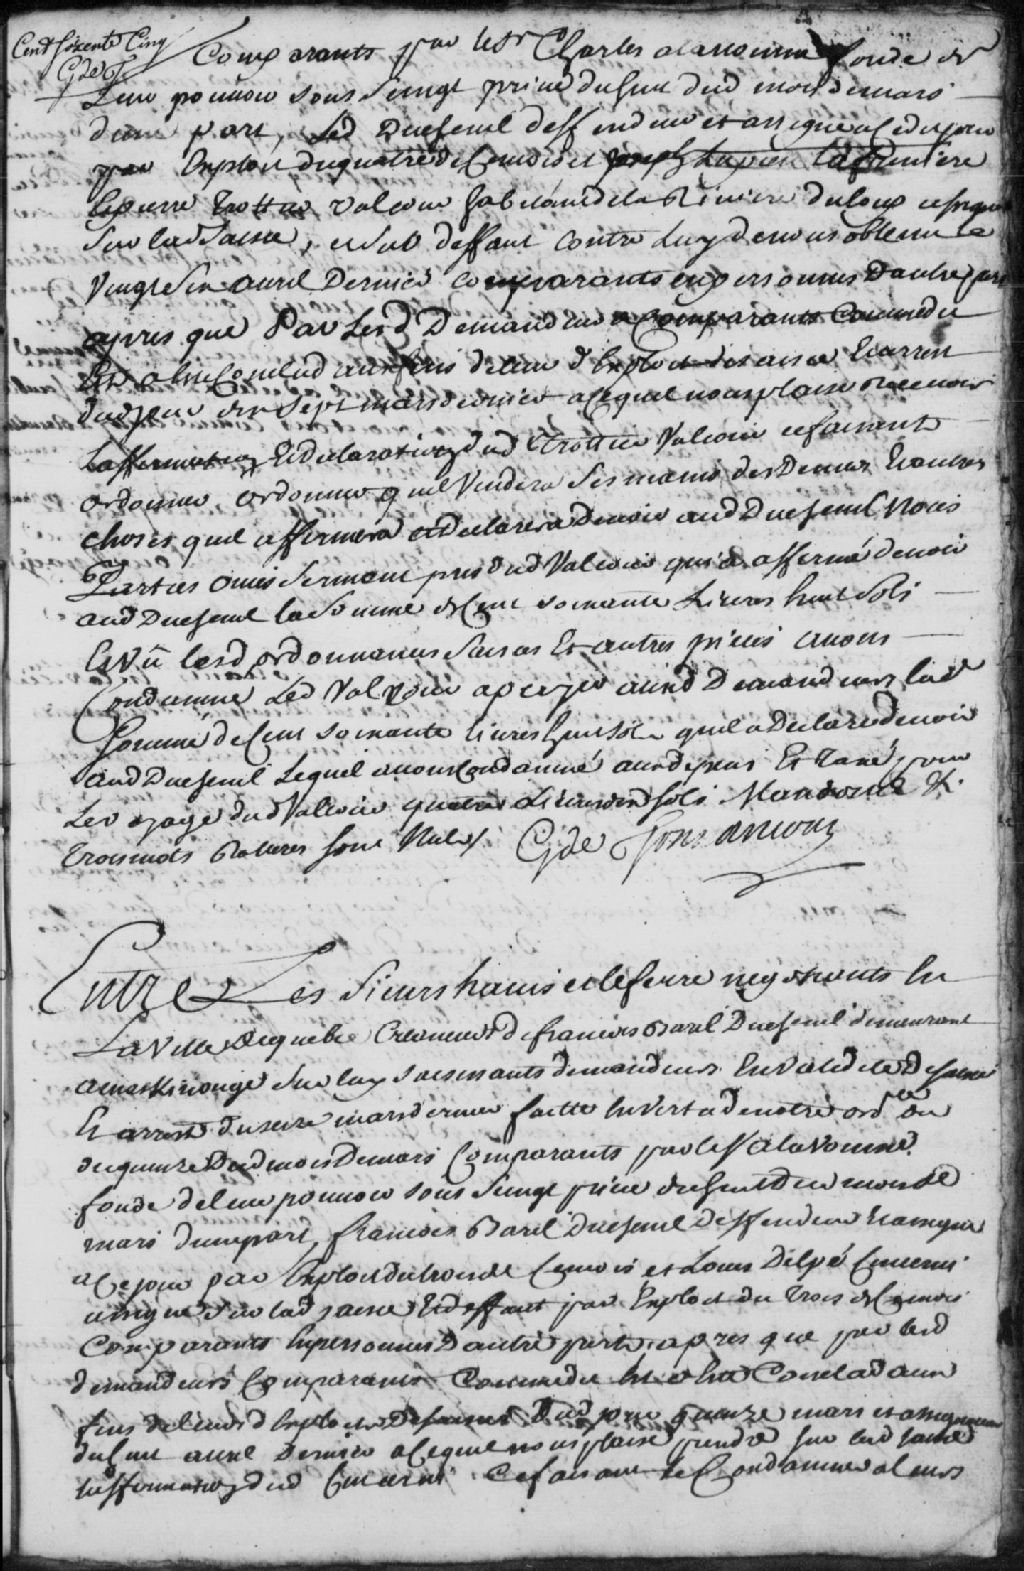 Cent soixente Cinq
G de T
Comparants par le Sr Charles alavoinne fondé de
Leur pouvoir sous seingt privé du huit dud mois de mars
d'une part, Led Duchenil deffendeur et assigné a ce dit jour
par Exploit du quatre de ce mois et
Et pierre Trottier Valcour habitant de la Riviere du loup assigné
Sur lad Saisie, et sur deffaut Contre Luy de nous obtenu le
Vingt Six avril Dernier Comparants en personnes D'autre part
apres que Par Lesd Demandeurs Comparants Comme dit
Est a Esté Conclud aux fins de leur d Exploit de saisie Et arrest
dud jour dix Sept mars dernier a ce qu'il nous plaise recevoir
L'affirmation Et declaration dud Trottier Valcour ce faisant
ordonner qu'il Vuidera Ses mains des Deniers Et autres
choses quil affirmera et Declarera Devoir aud Duchenil Nous
Parties ouies Serment pris dud Valcour qui a affermé devoir
aud Duchenil la Somme de Cent soixante Livres huit Sols
Et Vû lesd ordonnances Saisies Et autres pieces avons
Condamné Led Valcour a payer auxd Demandeurs lad
Somme de Cent soixante livres huit Sols quil a Declaré devoir
aud Duchenil Lequel avons Condamné aux depens Et Taxé pour
Le voyage dud Valcour quatre Livres dix sols Mandons &c.
Trois mots Raturés sont Nuls
G de Tonnancour
Entre Les Sieurs havis et lefevre negotiants En
La Ville de quebec Creanciers de francois Baril Duchenil demeurant
a maskinongé Sur luy saisissants demandeurs En Validité De saisie
Et arrest du seize mars dernier faitte En vertu de notre ordce du
du quinze Dud mois De mars Comparants par le Sr alavoinne
fondé de leur pouvoir sous Seingt privé du huit Du mois de
mars d'une part, francois Baril Duchenil Deffendeur Et assigné
a Ce jour par Exploit du trois de Ce mois et Louis Delpé
assigné Sur lad saisie Et deffaut par Exploit du Trois de Ce mois
Comparants En personnes D'autre part apres que par Lesd
demandeurs Comparants Comme dit Est a Esté Conclud aux
fins de leurs d Exploit De saisie Dud jour quinze mars et assignation
du huit avril Dernier a Ce quil nous plaise prendre sur lad saisie
L'affirmation dud Ce faisant Le Condamner a leurs